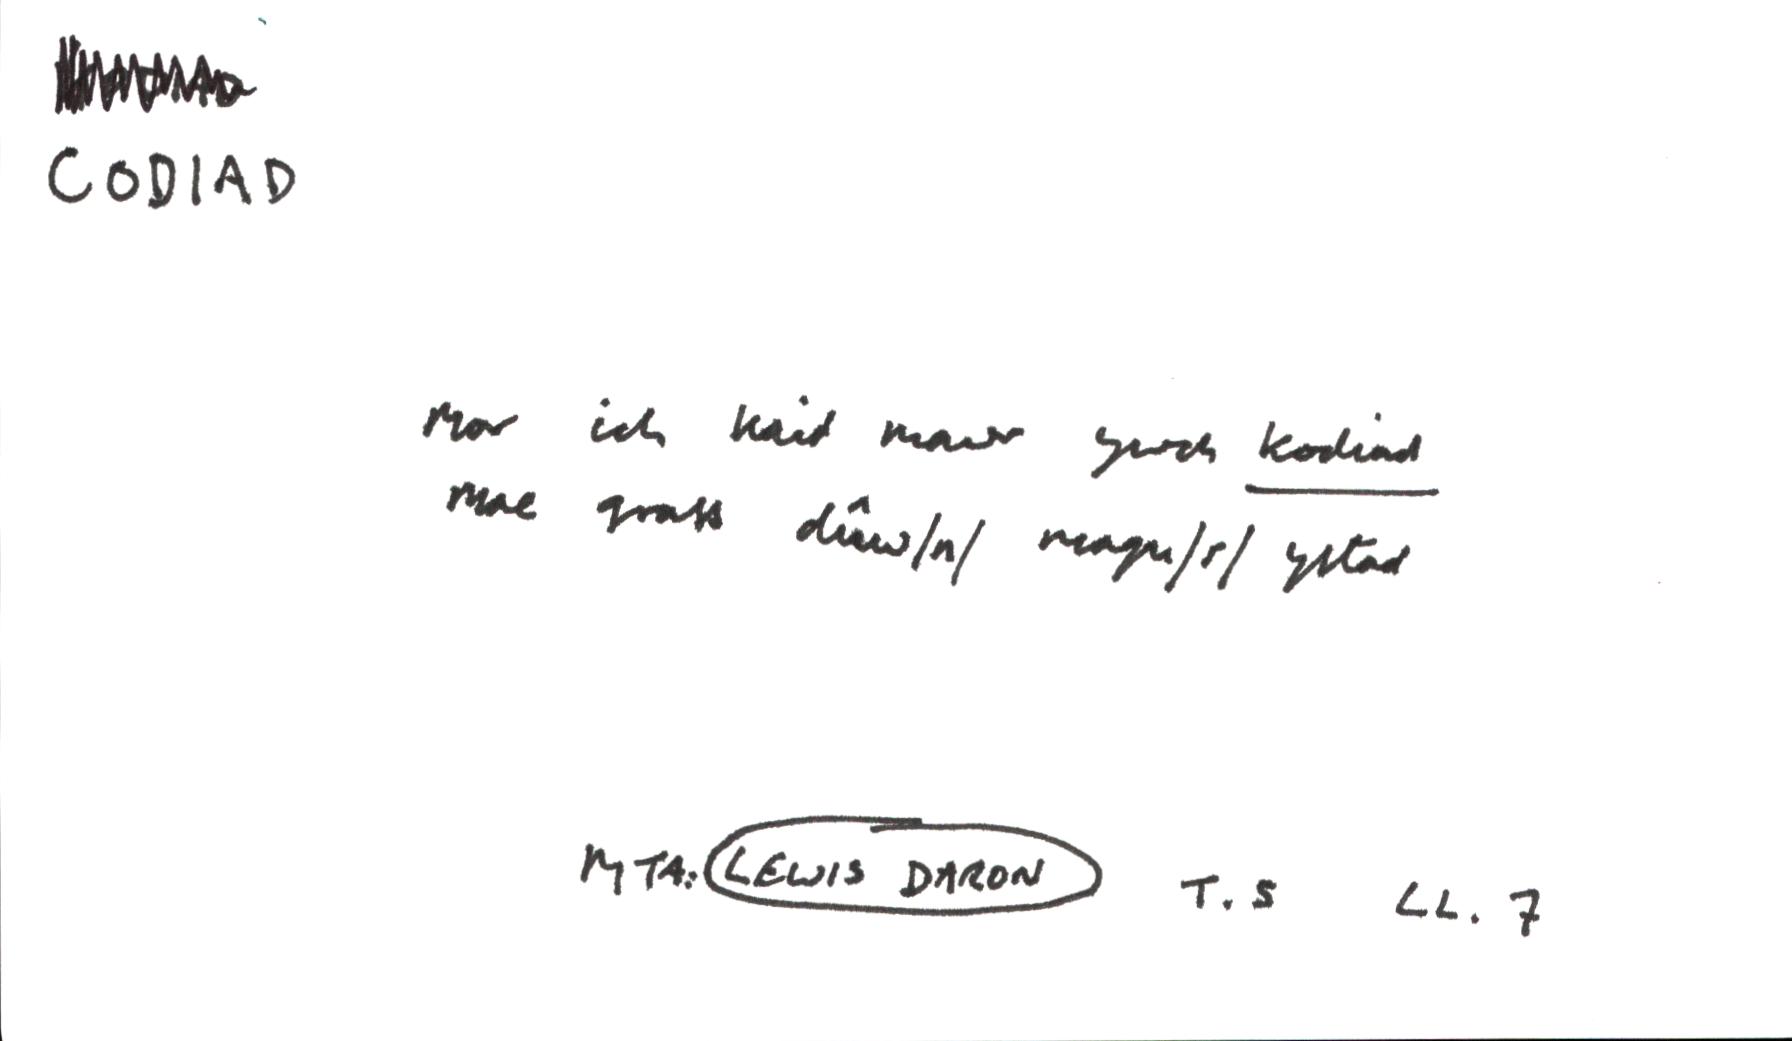 CODIAD
Mor ich kaid mawr ywch kodiad
Mae grass dûw/n/ magu/r/ ystad
MTA: LEWIS DARON T. 5 LL. 7